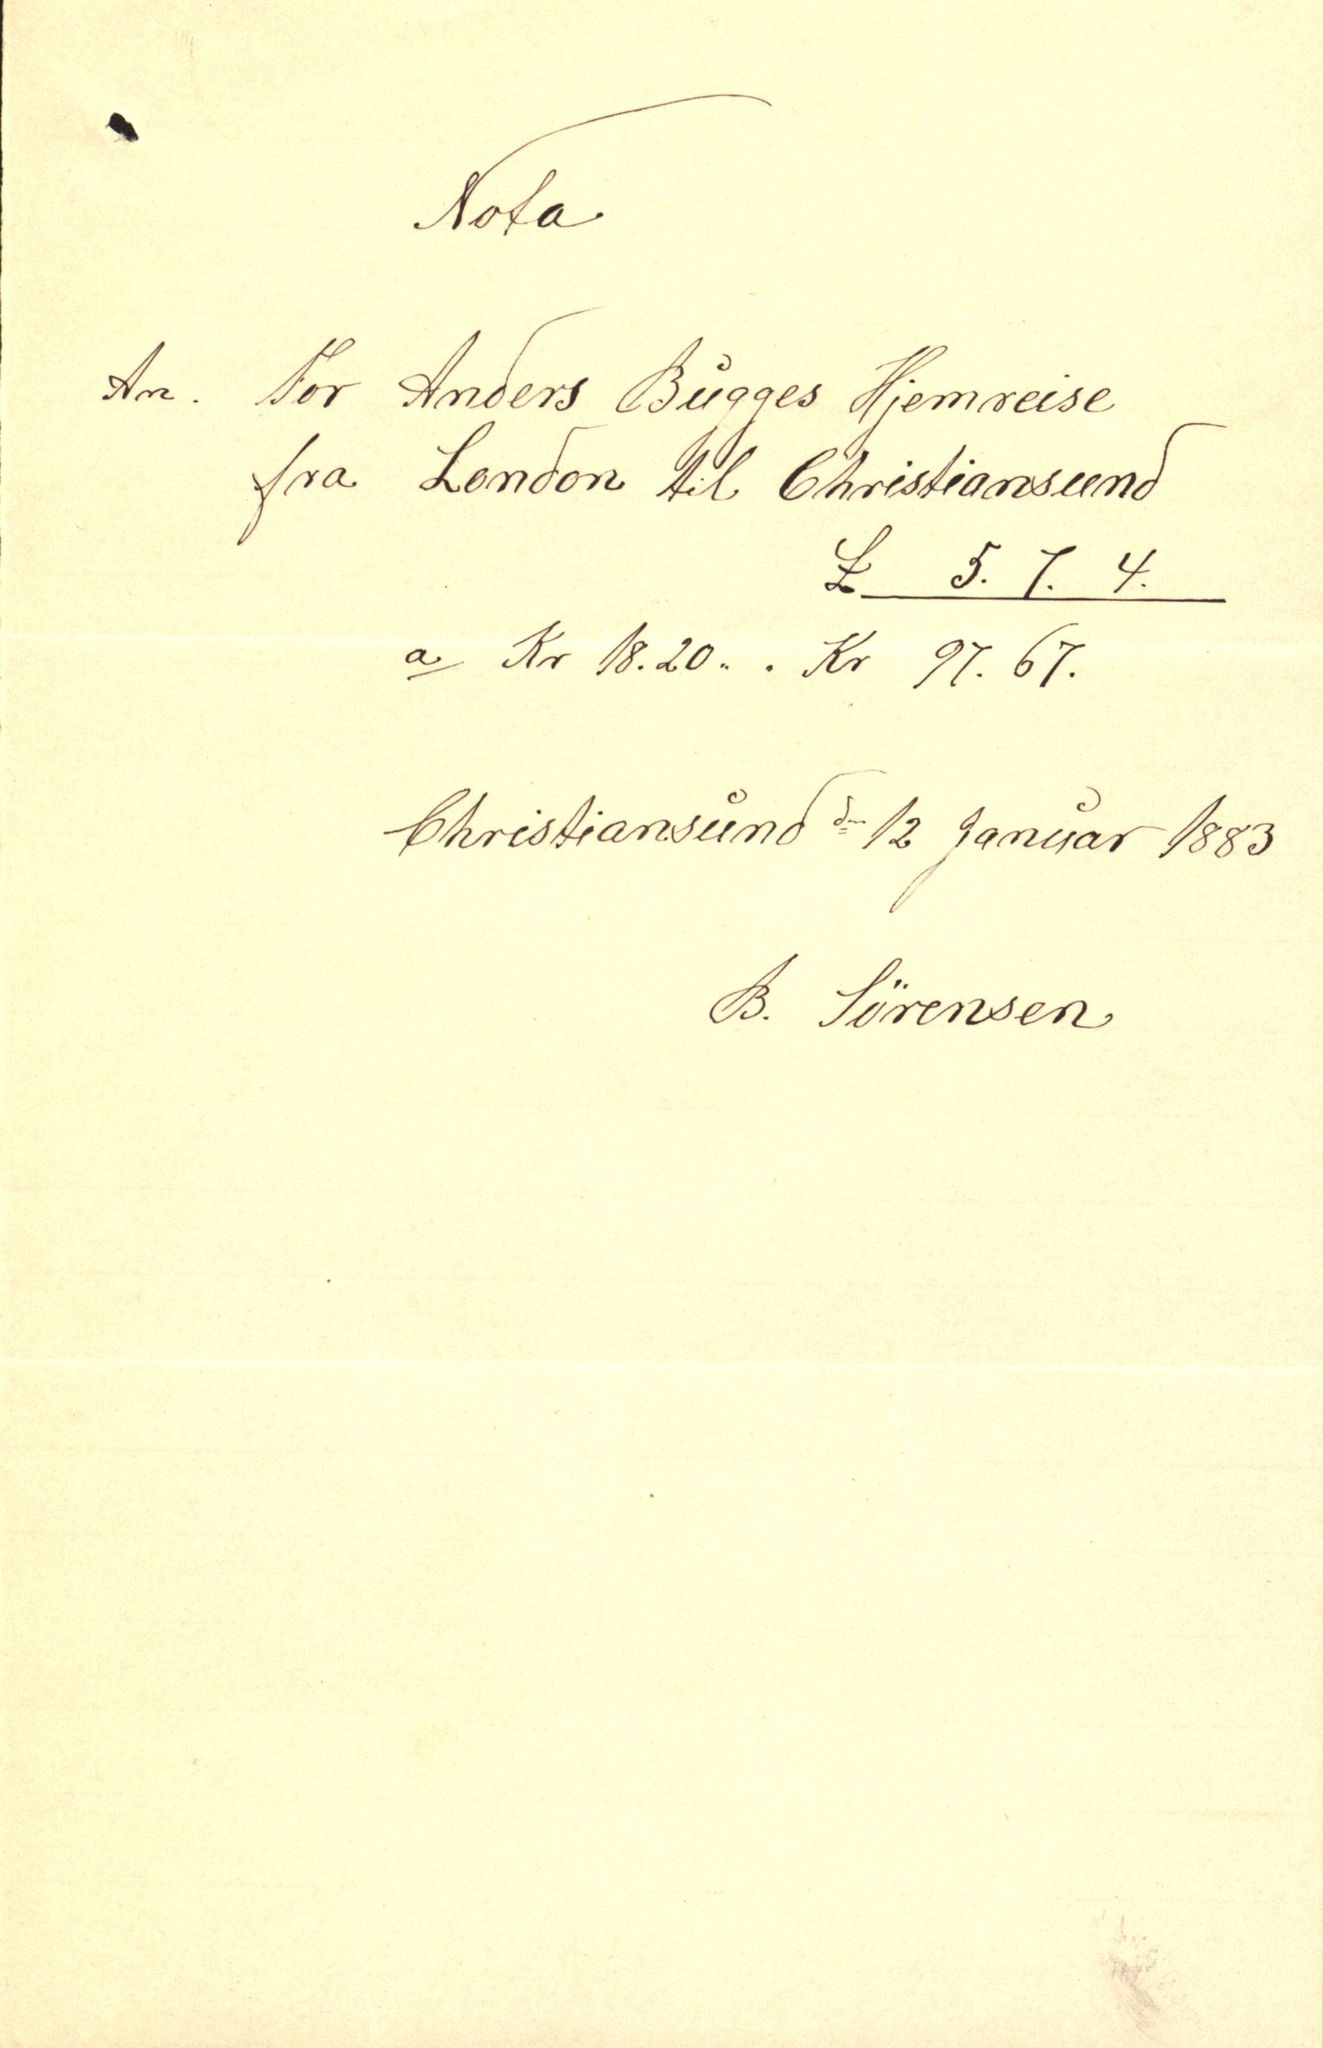 Nota
An. For Anders Bugges Hjemreise
fra London til Christiansund
£ 5. 7. 4.
a Kr 18.20.. . Kr 97. 67.
Christiansund dn 12 Januar 1883
B. Sörensen